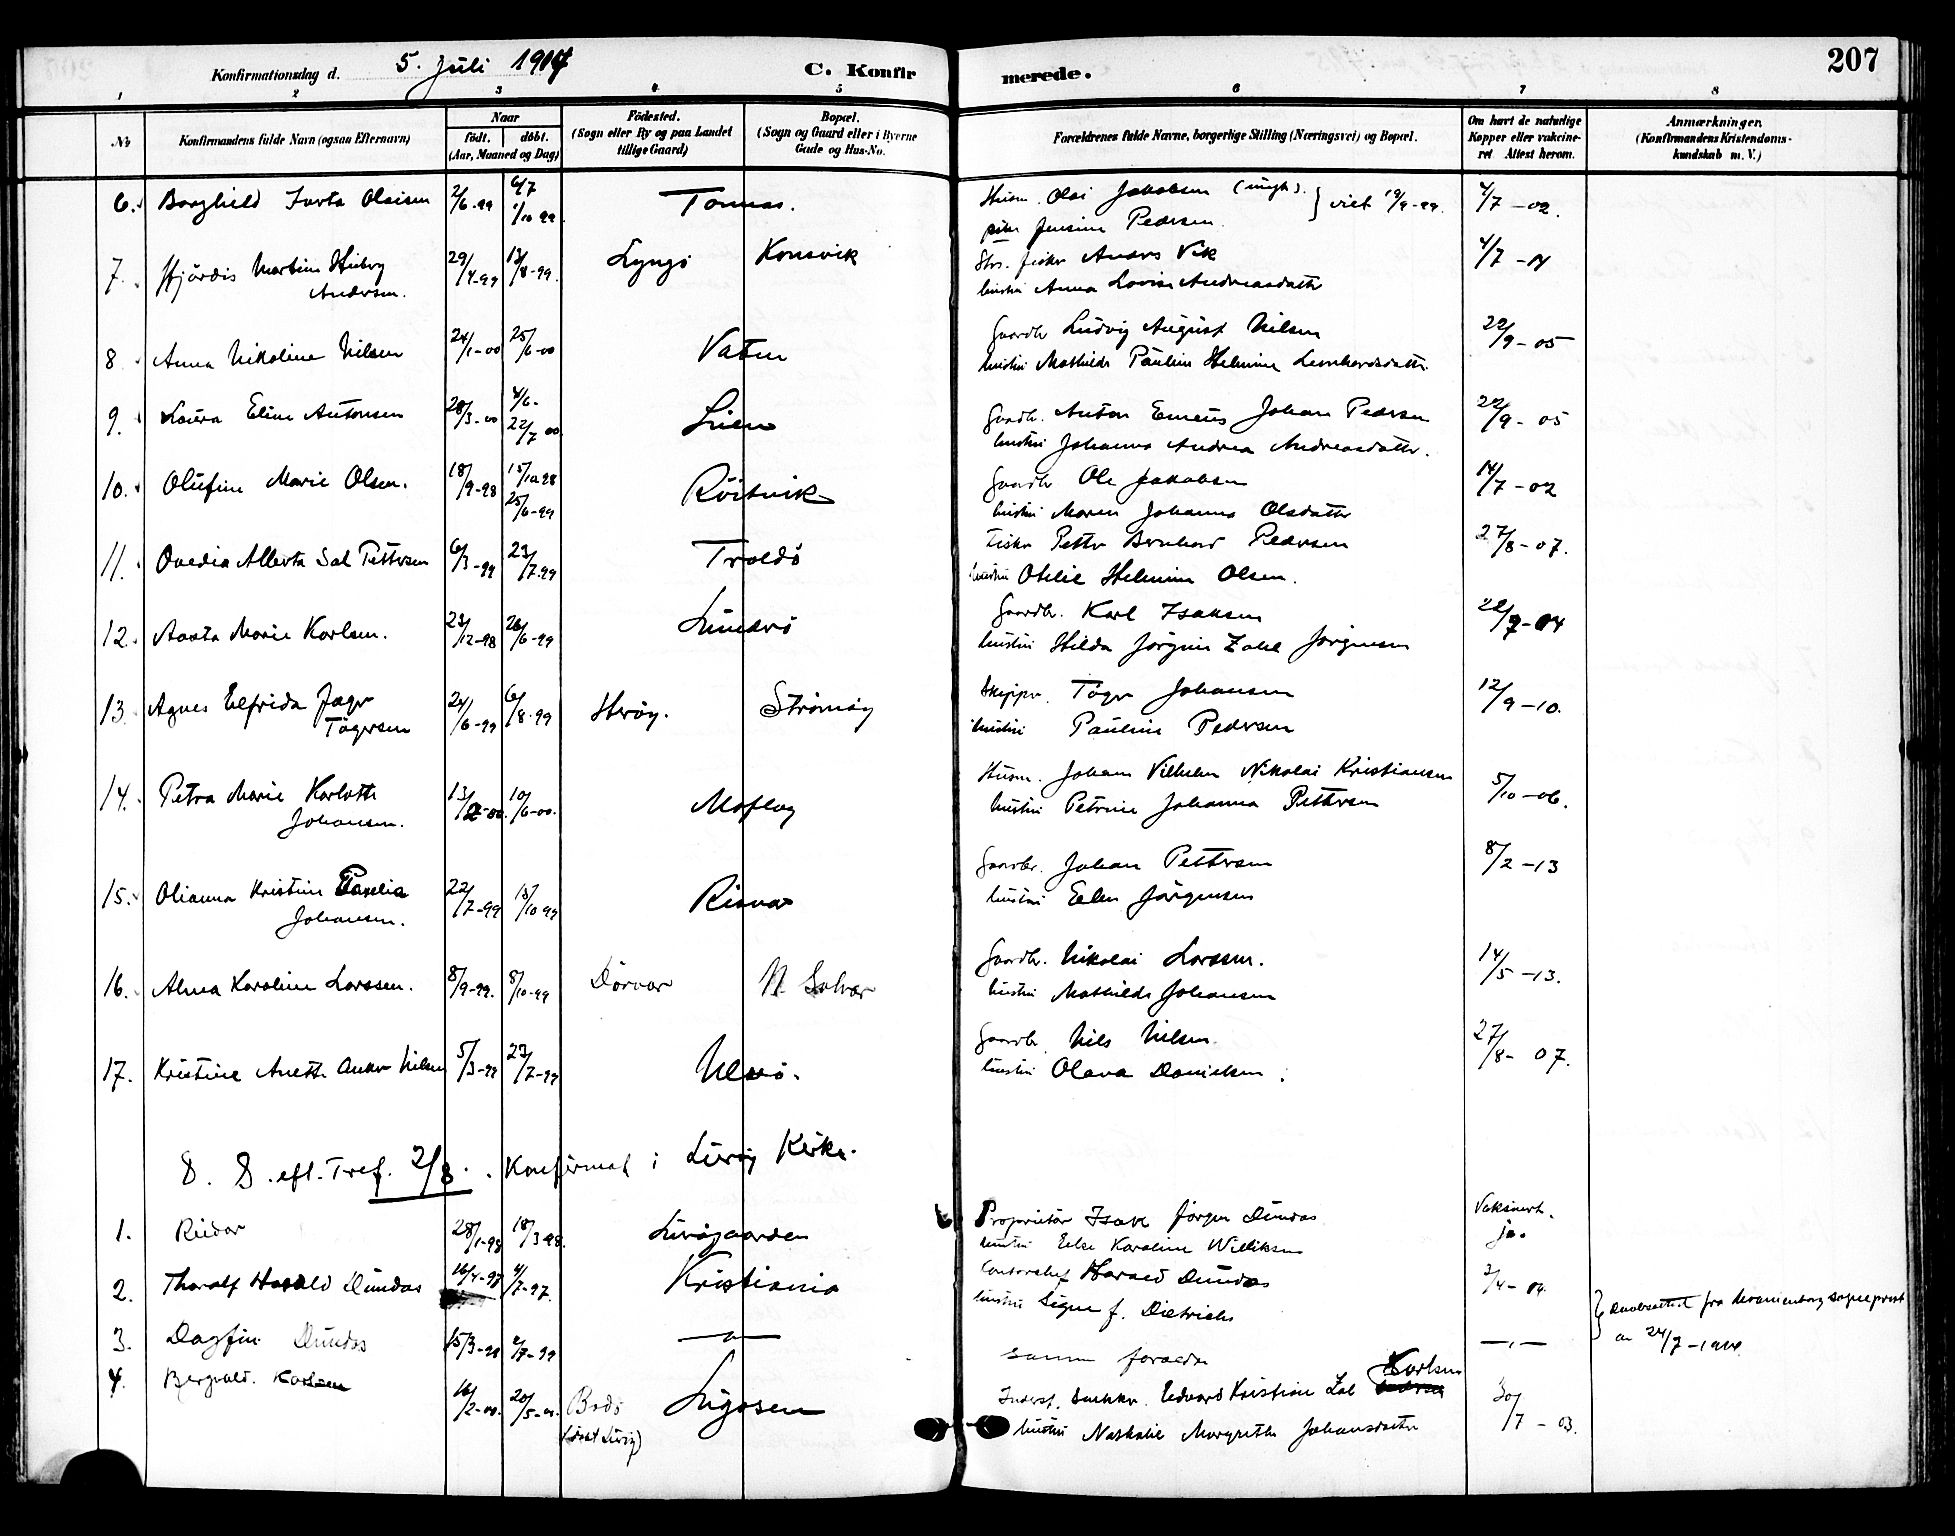 207
Konfirmationsdag d. 5. Juli 1914 C. Konfirmerede.
1 2 3 4 5 6 7 8
No
Konfirmandens fulde Navn (ogsaa Efternavn)
Naar født. døbt. (Aar, Maaned og Dag)
Fødested. (Sogn eller By og paa Landet tillige Gaard)
Bopæl. (Sogn og Gaard eller i Byerne Gade og Hus-No.
Forældrenes fulde Navne, borgerlige Stilling (Næringsvei) og Bopæl.
Om havt de naturlige Kopper eller vaccineret Attest herom.
Anmærkninger. (Konfirmandens Kristendomskundskab m. V.)
6. Borghild Olaisen 2/6-99 6/7 1/10 99 Tonnes. Husm. Olai Jakobsen (ungk.) } viet 19/9-99. 4/7-02.
pike Jensine Pedersen.
7. Hjördis Martine Andersen. 29/4-99 13/8-99. Lyngö Konsvik Anders Vik 4/7-14
hustru Anna Lovise Andreasdatter
8. Anna Nikoline Nilsen 24/1-00 25/6-00 Vatne Gaardbr. Ludvig August Nilsen 22/9-05
hustru Mathilde Pauline Helmine Leonhardsdatter.
9. Laura Eline Antonsen 28/3-00 4/6- 22/7 00 Lien Gaardbr. Anton Johan Pedersen 22/9-05
hustru Johanna Andrea Andreasdatter.
10. Olufine Marie Olsen. 18/9-98 15/10 98 25/6-99 Röitvik Gaardbr Ole Jakobsen 14/7-02
hustru Maren Johanna Olsdatter
11. Ovedia Alberta Sal Pettersen 6/3-99 23/7-99 Troldö Fisker Petter Bernhard Pedersen 27/8-07.
hustru Otelie Helmine Olsen.
12. Aasta Marie Karlsen. 23/12-98 26/6-99 Gaardbr. Karl Isaksen
hustru Hilda Jörgine Zahl Jörgensen
13. Agnes Elfrida Tögersen 24/6-99 6/8-99 Heröy. Strömöy Skipper Töger Johansen 12/9-10.
hustru Pauline Pedersen
14. Petra Marie Karlotte Johansen. 13/2-00. 10/6-00. Moflag Husm. Johan Vilhelm Nikolai Kristiansen 5/10-06.
hustru Petrine Johanna Pettersen
15. Olianna Kristine Johansen. 22/7-99 15/10 99 Risvær Gaardbr. Johan Pettersen 8/2-13
hustru Elen Jörgensen
16. Alma Karoline Larssen. 8/9-99. 8/10-99 Dörvær N. Solvær Gaardbr. Nikolai Larssen. 14/5-13.
hustru Mathilde Johansen
17. Kristine Anette Anker Nilsen 5/3-99 23/7-99 Gaardbr. Nils Nilsen. 27/8-07.
hustru Olava Danielsen.
8. S. eft. Tref. 2/8. Konfirmat i Luröy Kirke.
1. Reidar 28/1-98 18/3 98. Luröygaarden Proprietær Isak Jörgen Dundas Vaksinert. ja.
hustru Karoline Williksen
2. Thoralf Harald Dundas 16/4-97 4/7-97. Kristiania Contorchef Harald Dundas
hustru Signe f. Dietrichs
} Daabsattest fra Uranienborg sogneprest av 24/7-1914.
3. Dagfin Dundas 15/3-99 —„— samme foraeldre —„—
4. Bergvald. Karlsen 16/2-00. 20/5-00. Bodö (döbt Luröy) Edvard Kristian Zahl Karlsen 30/7-03.
hustru Nathalie Margrethe Johansdatter